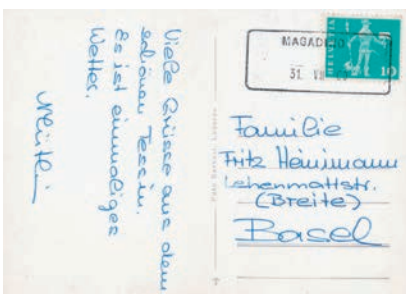 Viele Grüsse aus dem
schönen Tessin.
Es ist einmaliges
Wetter.
MAGADINO
31. VII
HELVETIA
10
Familie
Fritz Heinimann
Lehenmattstr.
(Breite)
Basel